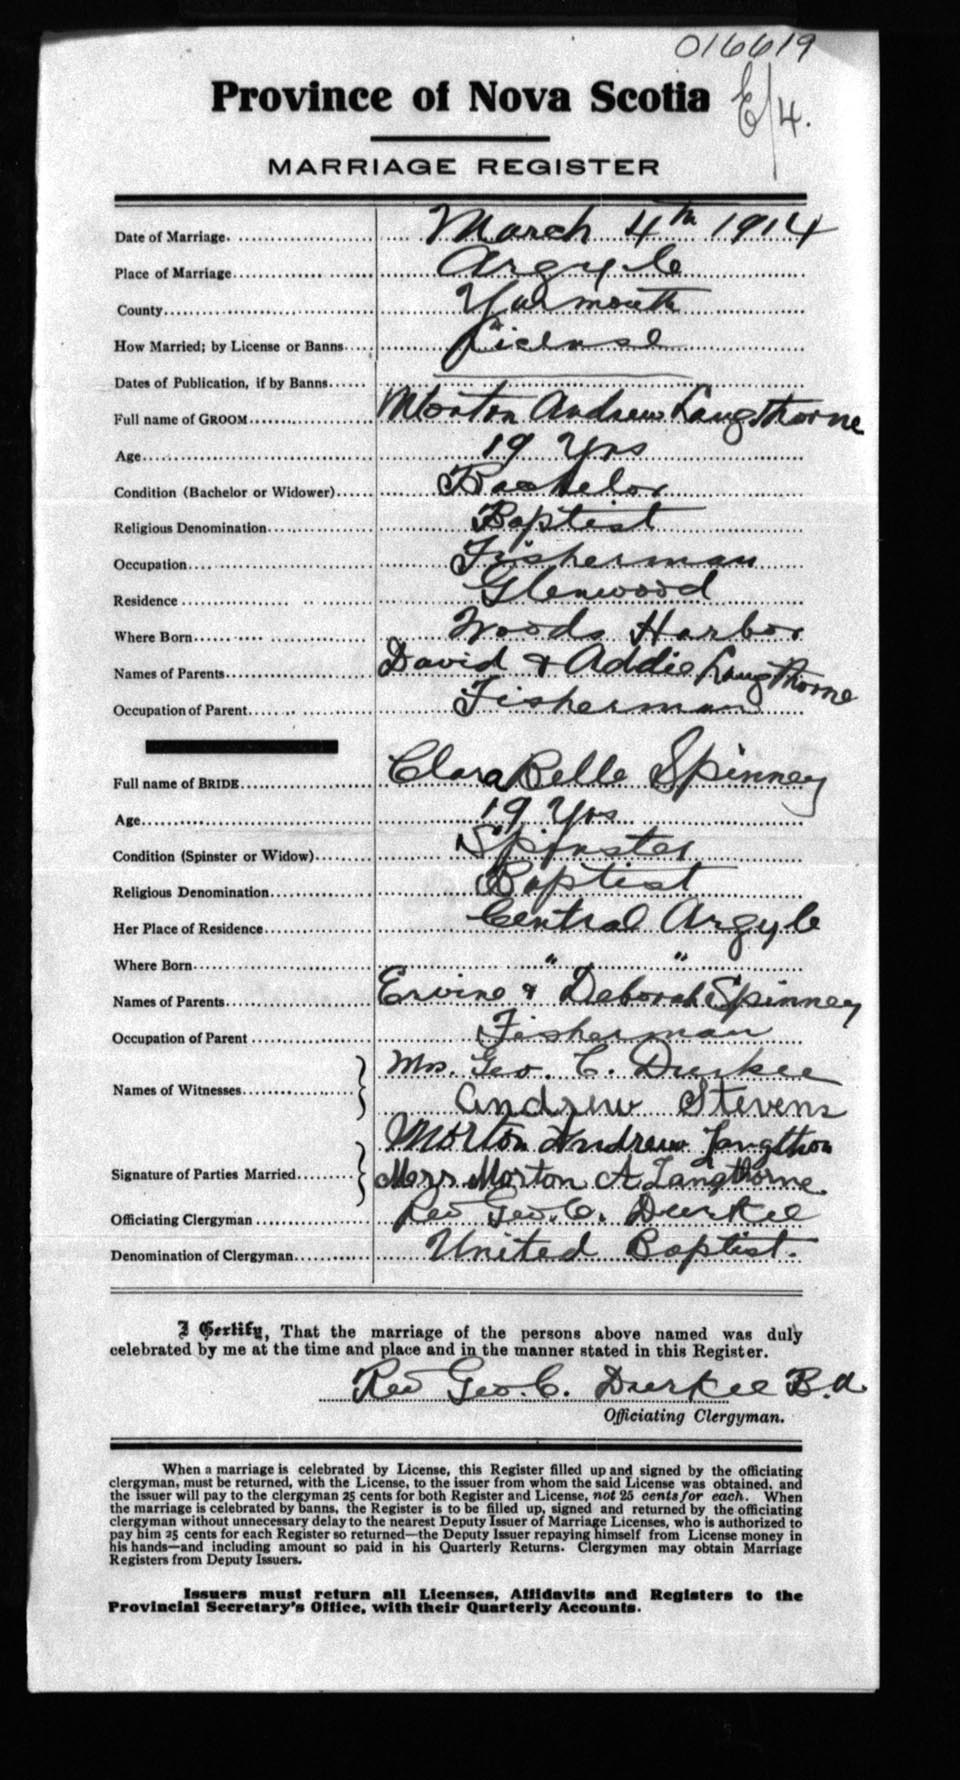 016619
E/4.
Province of Nova Scotia
MARRIAGE REGISTER
Date of Marriage. March 4th 1914
Place of Marriage Argyle
County Yarmouth
How Married; by License or Banns License
Dates of Publication, if by Banns
Full name of GROOM Morton Andrew Langthorne
Age 19 Yrs
Condition (Bachelor or Widower) Bachelor
Religious Denomination Baptist
Occupation Fisherman
Residence Glenwood
Where Born Woods Harbor
Names of Parents David & Addie Langthorne
Occupation of Parent Fisherman
Full name of BRIDE Clara Belle Spinney
Age 19 Yrs
Condition (Spinster or Widow) Spinster
Religious Denomination Baptist
Her Place of Residence Central Argyle
Where Born " "
Names of Parents Ervine & Deborah Spinney
Occupation of Parent Fisherman
Names of Witnesses Mrs. Geo. C. Durkee
Andrew Stevens
Signature of Parties Married Morton Andrew Langthon
Mrs Morton A Langthorne.
Officiating Clergyman Rev Geo. C. Durkee
Denomination of Clergyman United Baptist.
I Certify, That the marriage of the persons above named was duly
celebrated by me at the time and place and in the manner stated in this Register.
Rev Geo. C. Durkee B.A.
Officiating Clergyman.
When a marriage is celebrated by License, this Register filled up and signed by the officiating
clergyman, must be returned, with the License, to the issuer from whom the said License was obtained, and
the issuer will pay to the clergyman 25 cents for both Register and License, not 25 cents for each. When
the marriage is celebrated by banns, the Register is to be filled up, signed and returned by the officiating
clergyman without unnecessary delay to the nearest Deputy Issuer of Marriage Licenses, who is authorized to
pay him 25 cents for each Register so returned—the Deputy Issuer repaying himself from License money in
his hands—and including amount so paid in his Quarterly Returns. Clergymen may obtain Marriage
Registers from Deputy Issuers.
Issuers must return all Licenses, Affidavits and Registers to the
Provincial Secretary's Office, with their Quarterly Accounts.